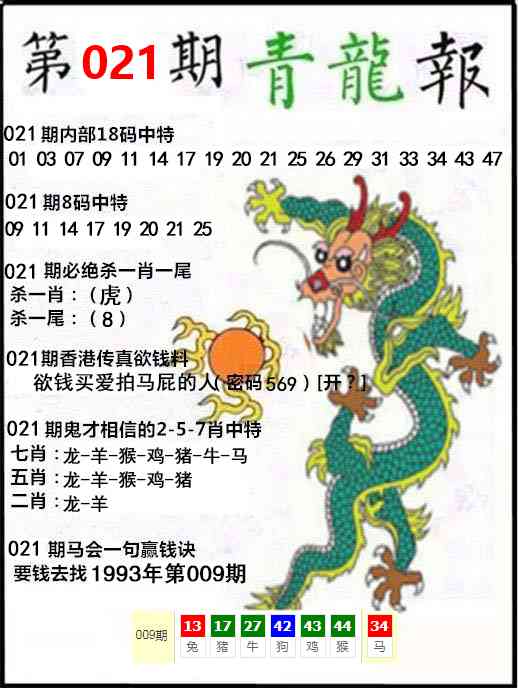 第021期青龍報
021期内部18码中特
01 03 07 09 11 14 17 19 20 21 25 26 29 31 33 34 43 47
021期8码中特
09 11 14 17 19 20 21 25
021 期必绝杀一肖一尾
杀一肖：（虎）
杀一尾：（8）
021期香港传真欲钱料
欲钱买爱拍马屁的人（密码569）[开？]
021期鬼才相信的2-5-7肖中特
七肖：龙-羊-猴-鸡-猪-牛-马
五肖：龙-羊-猴-鸡-猪
二肖：龙-羊
021 期马会一句赢钱诀
要钱去找1993年第009期
009期 13 17 27 42 43 44 34
兔 猪 牛 狗 鸡 猴 马